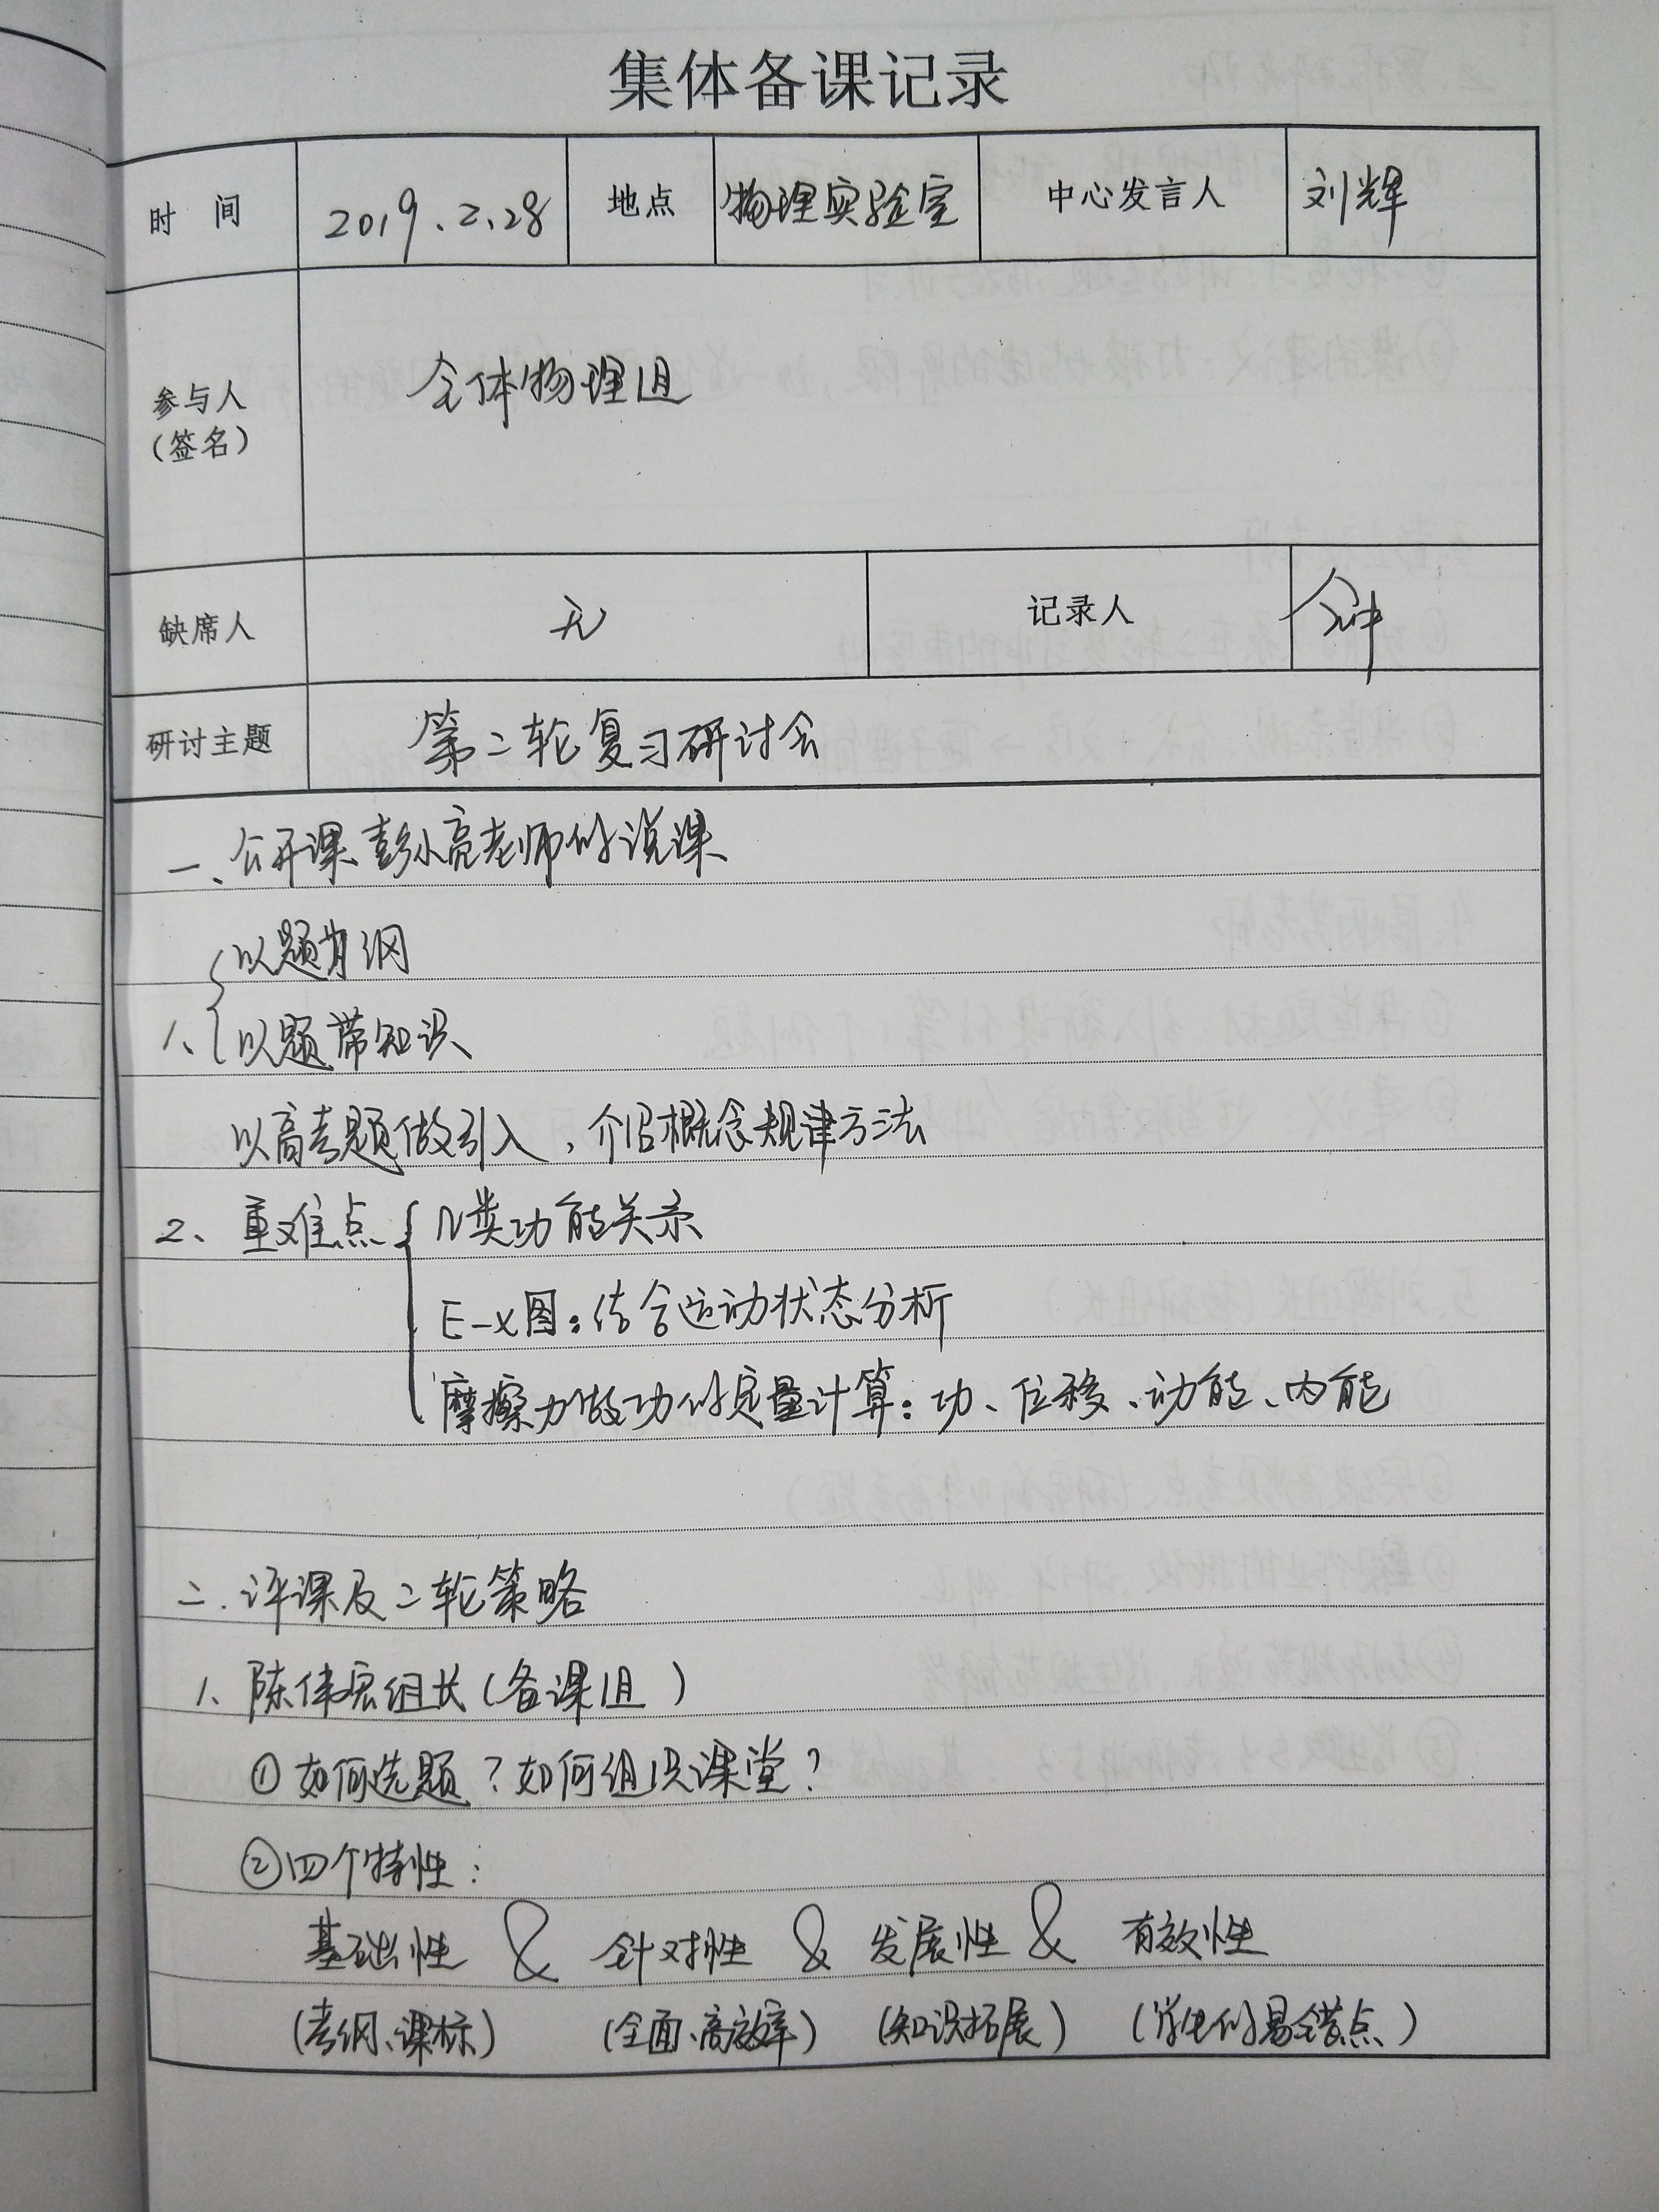 集体备课记录
时 间 2019.2.28 地点 物理实验室 中心发言人 刘辉
参与人
(签名)
全体物理组
缺席人 无 记录人
研讨主题 第二轮复习研讨会
一、公开课、彭小亮老师的说课
以题为纲
1、以题带知识
以高考题做引入,介绍概念规律方法
2、重难点 N类功能关系
E-x图:结合运动状态分析
摩擦力做功的定量计算:功、位移、动能、内能
二.评课及二轮策略
1、陈伟宏组长(备课组)
①如何选题?如何组织课堂?
②四个特性:
基础性 & 针对性 & 发展性 & 有效性
(考纲、课标) (全面、高效率) (知识拓展) (学生的易错点)